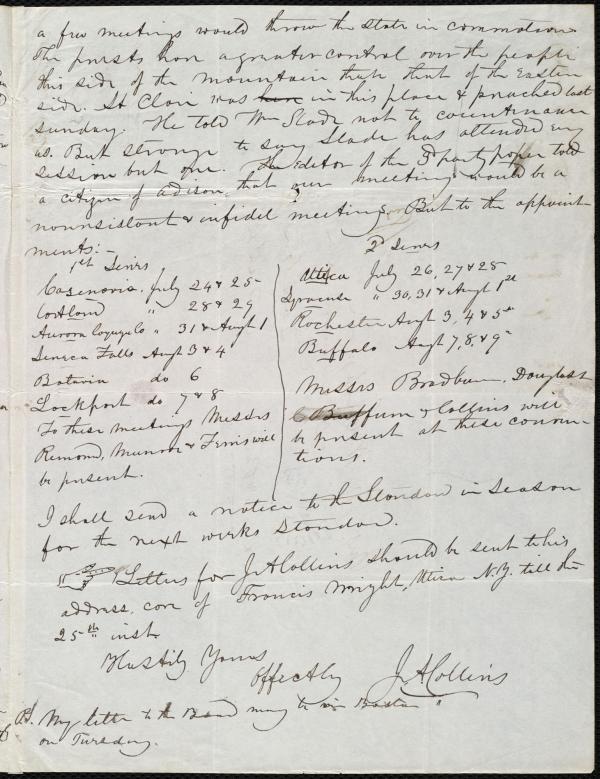 a few meetings would throw the state in commotion
The priests have a greater control over the people
this side of the mountain than that of the Eastern
side. St Clair was in this place & preached last
sunday. He told Wm Slade not to countenance
us. But strange to say Slade has attended every
session but one. The Editor of the 3d party paper told
a citizen of Adison, that our meetings would be a
nonresistant & infidel meeting. But to the appoint
ments:-
1st Series
Cazenovia, July 24 & 25
Cortland " 28 & 29
Aurora Cayuga Co " 31 & Augt 1
Seneca Falls Augt 3 & 4
Batavia do 6
Lockport do 7 & 8
To these meetings Messrs
Remond, Munroe & Ferris will
be present.
2d Series
Utica July 26, 27 & 28
Syracuse " 30, 31 & Augt 1st
Rochester Augt 3, 4 & 5th
Buffalo Augt 7, 8, & 9th
Messrs Bradburn, Douglass
Buffum & Collins will
be present at these conven
tions.
I shall send a notice to the Standard in season
for the next weeks Standard.
☞ Letters for J.A Collins should be sent to his
address, care of Francis Wright, Utica N.Y. till the
25th inst.
Hastily Yours
Effectly J.A Collins
P.S. My letter to the Board may be in Boston
on Tuesday.